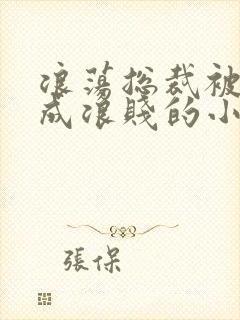 浪蕩总裁被
成浪賤的小
張保